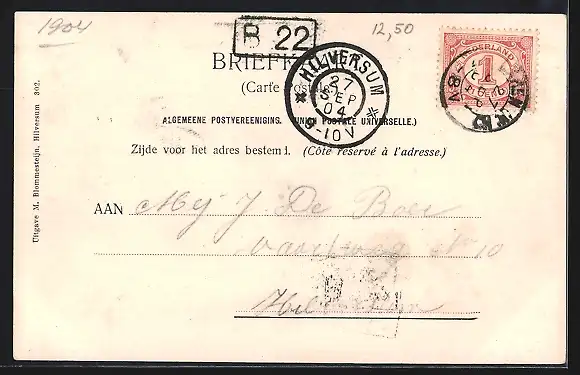 1904
12,50
B 22
BRIEFK
(Carte Postale)
HILVERSUM
27
SEP
04
9-10V
NEDERLAND
1
CENT
ALGEMEENE POSTVEREENIGING. (UNION POSTALE UNIVERSELLE.)
Zijde voor het adres bestemd. (Côté réservé à l'adresse.)
Uitgave M. Blommesteijn, Hilversum 302.
AAN Mej J De Boer
No 10
Hilversum